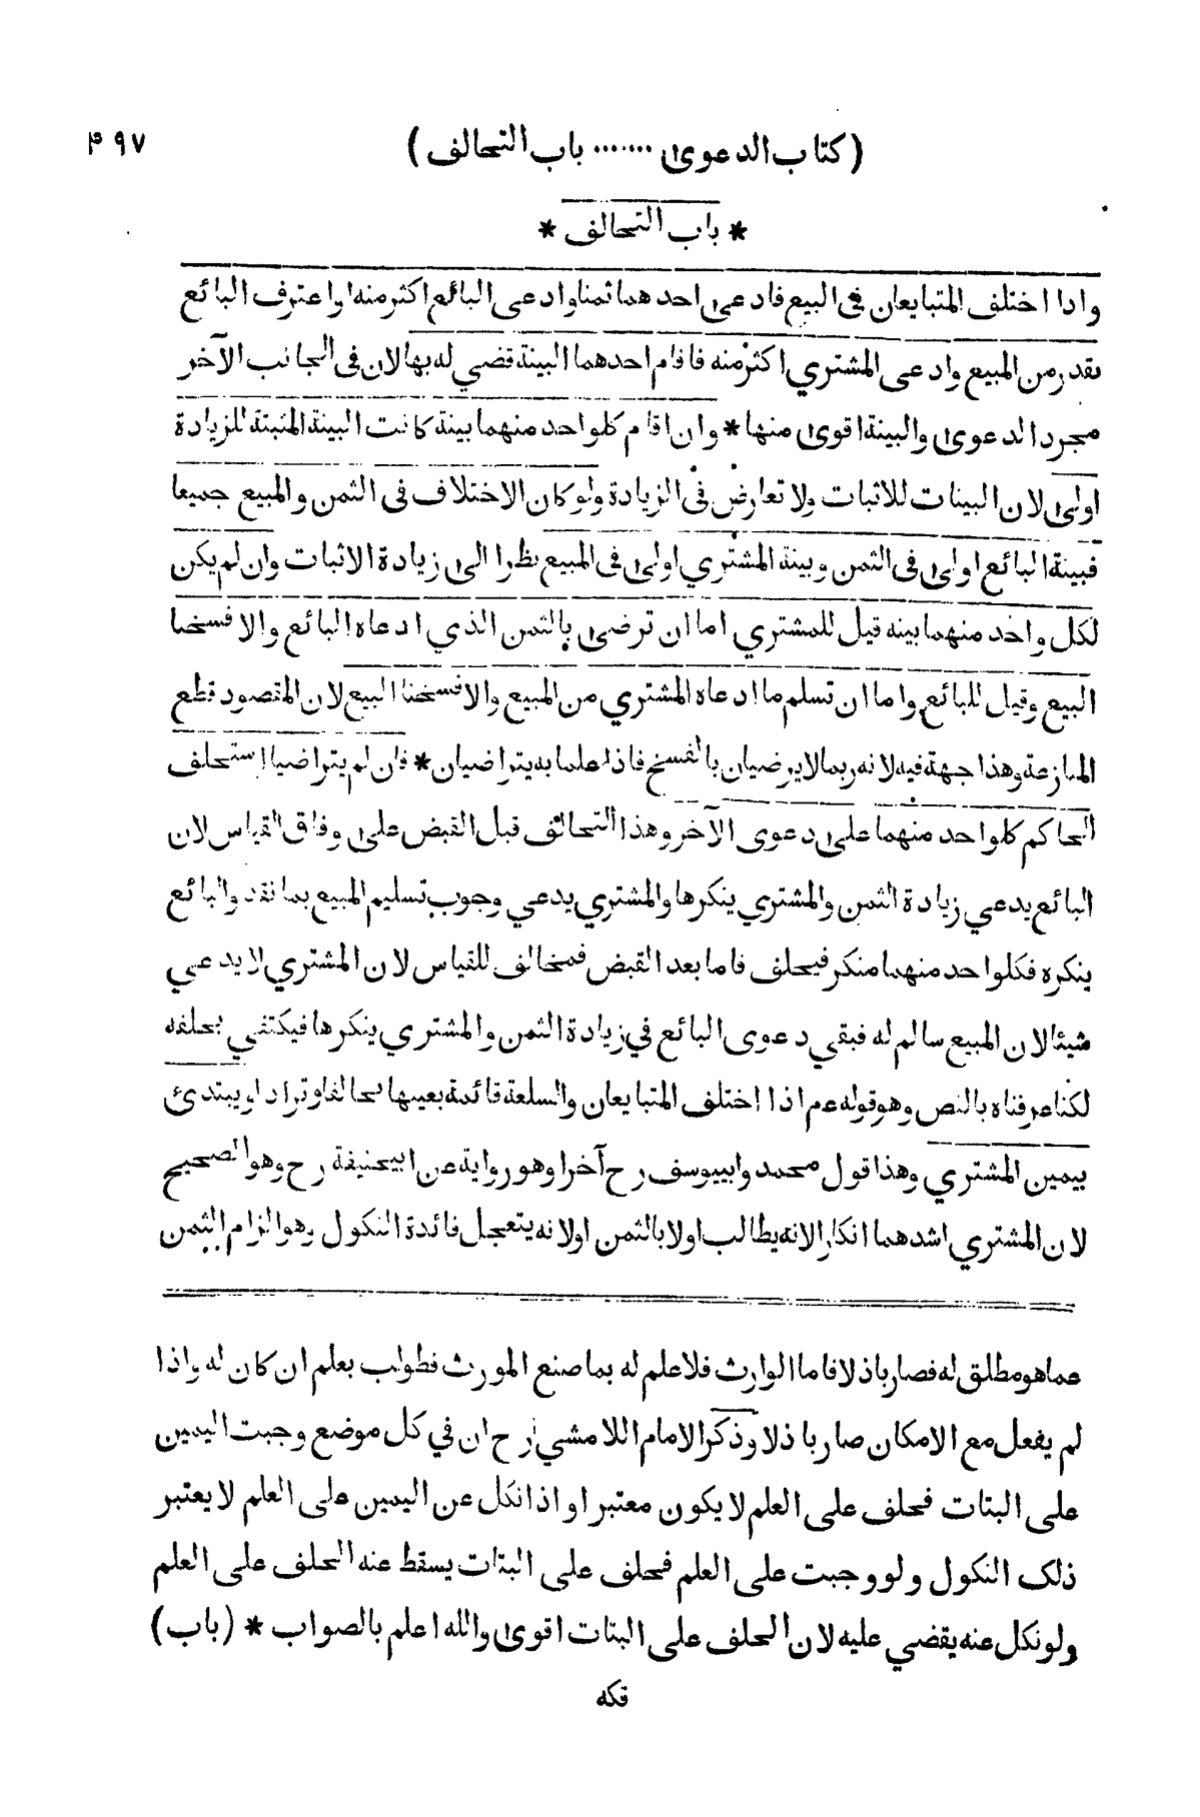 (کتاب الدعوى ....... باب التحالف) ۴۹۷
* باب التحالف *
واذا اختلف المتبايعان فى البيع فادعى احدهما ثمنا وادعى البائع اكثر منه او اعترف البائع
بقدر من المبيع وادعى المشتري اكثر منه فاقام احدهما البينة قضي له بها لان فى الجانب الآخر
مجرد الدعوى والبينة اقوى منها * وان اقام كل واحد منهما بينة كانت البينة المثبتة للزيادة
اولى لان البينات للاثبات ولا تعارض فى الزيادة ولو كان الاختلاف فى الثمن والمبيع جميعا
فبينة البائع اولى فى الثمن وبينة المشتري اولى فى المبيع نظرا الى زيادة الاثبات وان لم يكن
لكل واحد منهما بينه قيل للمشتري اما ان ترضى بالثمن الذي ادعاه البائع والا فسخنا
البيع وقيل للبائع واما ان تسلم ما ادعاه المشتري من المبيع والا فسخنا البيع لان المقصود قطع
المنازعة وهذا جهة فيه لانه ربما لا يرضيان بالفسخ فاذا علما به يتراضيان * فان لم يتراضيا استحلف
الحاكم كل واحد منهما على دعوى الآخر وهذا التحالف قبل القبض على وفاق القياس لان
البائع يدعي زيادة الثمن والمشتري ينكرها والمشتري يدعي وجوب تسليم المبيع بما نقد والبائع
ينكره فكل واحد منهما منكر فيحلف فاما بعد القبض فمخالف للقياس لان المشتري لا يدعي
شيئا لان المبيع سالم له فبقي دعوى البائع في زيادة الثمن والمشتري ينكرها فيكتفي بحلفه
لكنا عرفناه بالنص وهو قوله عم اذا اختلف المتبايعان والسلعة قائمة بعينها تحالفا وترادا ويبتدئ
بيمين المشتري وهذا قول محمد وابييوسف رح آخرا وهو رواية عن ابيحنيفة رح وهو الصحيح
لان المشتري اشدهما انكارا لانه يطالب اولا بالثمن او لانه يتعجل فائدة النكول وهو الزام الثمن
عما هو مطلق له فصار باذلا فاما الوارث فلا علم له بما صنع المورث فطولب بعلم ان كان له واذا
لم يفعل مع الامكان صار باذلا وذكر الامام اللامشي رح ان في كل موضع وجبت اليمين
على البتات فحلف على العلم لا يكون معتبرا واذا نكل عن اليمين على العلم لا يعتبر
ذلك النكول ولو وجبت على العلم فحلف على البتات يسقط عنه الحلف على العلم
ولو نكل عنه يقضي عليه لان الحلف على البتات اقوى والله اعلم بالصواب * (باب)